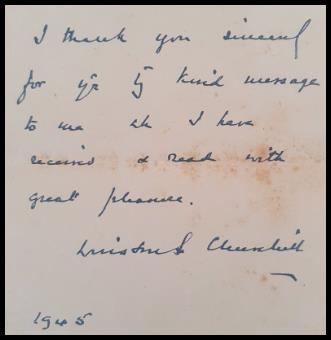 I thank you sincerely
for yr vy kind message
to me wh I have
received & read with
great pleasure.
Winston S. Churchill
1945